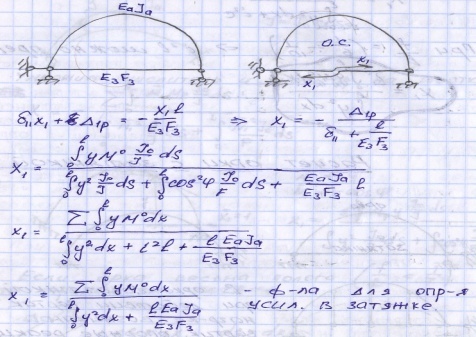 EaJa
E₃F₃
О.С.
x₁
x₁
δ₁₁x₁ + Δ₁p = - x₁ l / E₃F₃ ⇒ x₁ = - Δ₁p / (δ₁₁ + l / E₃F₃)
x₁ = ∫₀ˡ y M⁰ J₀/J dS / (∫₀ˡ y² J₀/J dS + ∫₀ˡ cos²φ J₀/F dS + EaJa / E₃F₃ l)
x₁ = Σ ∫₀ˡ y M⁰ dx / (∫₀ˡ y² dx + i² l + l EaJa / E₃F₃)
x₁ = Σ ∫₀ˡ y M⁰ dx / (∫₀ˡ y² dx + l EaJa / E₃F₃) - ф-ла для опр-я
усил. в затяжке.